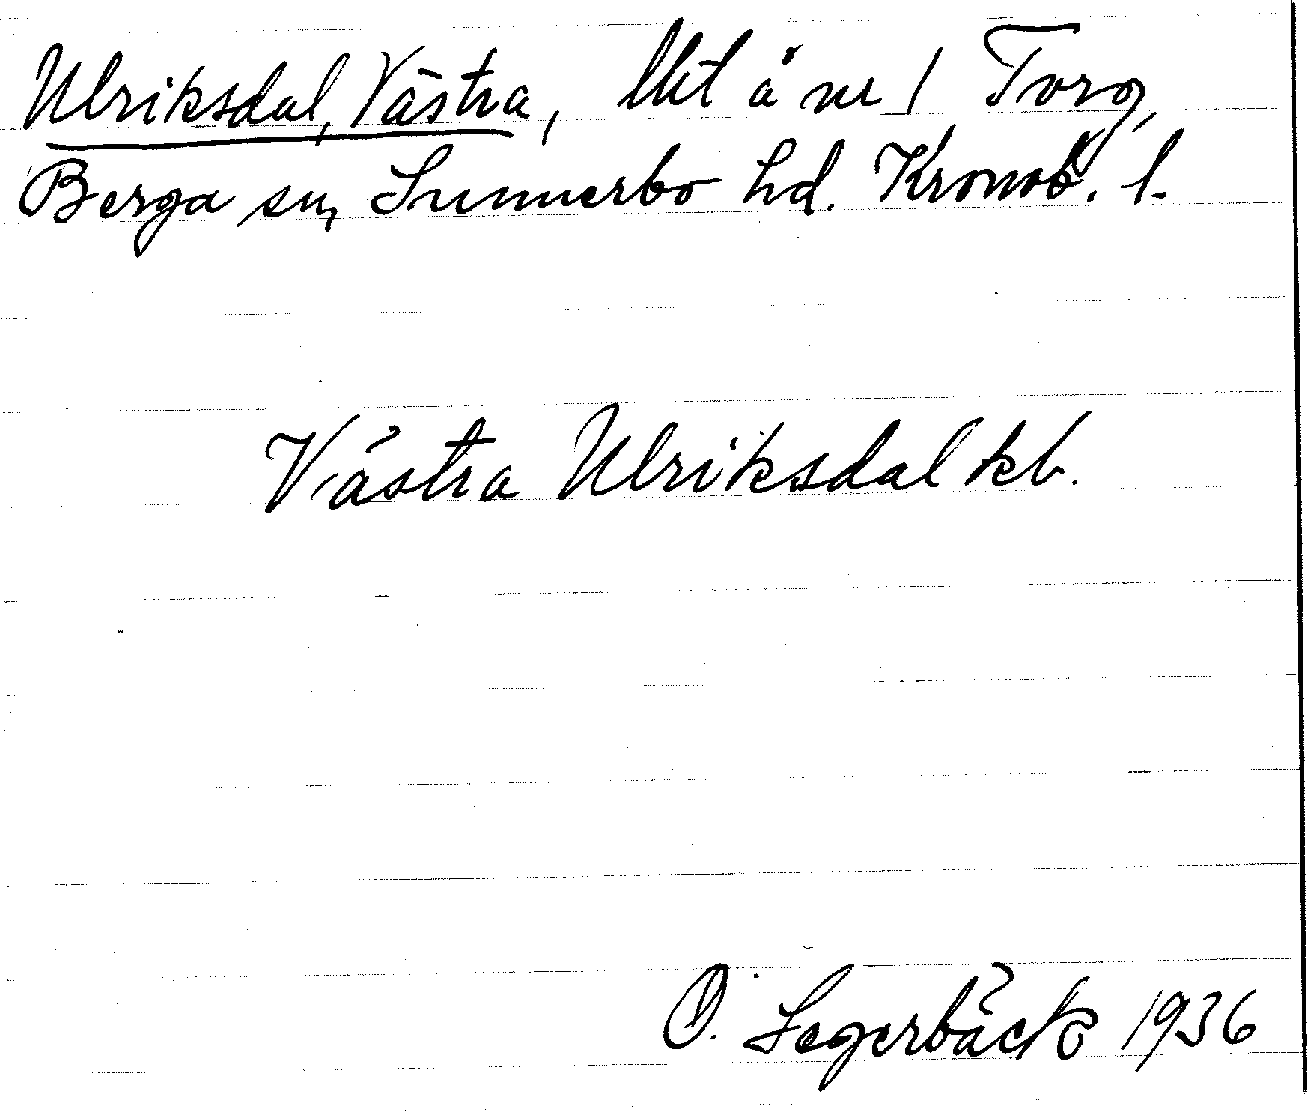 Ulriksdal, Västra, lht å nr 1 Torg,
Berga sn, Sunnerbo hd. Kronob. l.
Västra Ulriksdal kb.
O. Segerbäck 1936